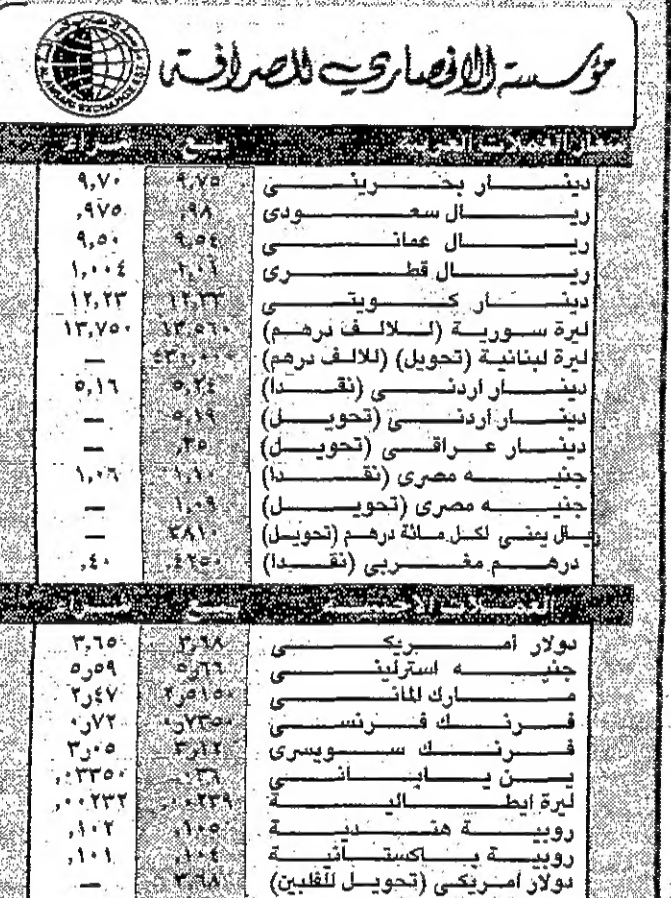 مؤسسة الانصاري للصرافة
AL ANSARI EXCHANGE EST.
أسعار العملات العربية بيع شراء
دينار بحرينى ٩,٧٥ ٩,٧٠
ريال سعودى ,٩٨ ,٩٧٥
ريال عمانى ٩,٥٤ ٩,٥٠
ريال قطرى ١,٠١ ١,٠٠٤
دينار كويتى ١٢,٣٣ ١٢,٢٣
ليرة سورية (لـلالف درهم) ١٣,٥٦٠ ١٣,٧٥٠
ليرة لبنانية (تحويل) (للالف درهم) —
دينار أردنى (نقدا) ٥,٢٤ ٥,١٦
دينار أردنى (تحويل) ٥,١٩ —
دينار عراقى (تحويل) ,٣٥ —
جنيه مصرى (نقدا) ١,١٠ ١,٠٦
جنيه مصرى (تحويل) ١,٠٩ —
ريال يمنى لكل مائة درهم (تحويل) ٣٨١٠ —
درهم مغربى (نقدا) ,٤٢٥٠ ,٤٠
العملات الأجنبية بيع شراء
دولار أمريكى ٣,٦٨ ٣,٦٥
جنيه استرلينى ٥٫٦٦ ٥٫٥٩
مارك المانى ٢٫٥١٥٠ ٢٫٤٧
فرنك فرنسى ٠٫٧٣٥٠ ٠٫٧٢
فرنك سويسرى ٣٫١٢ ٣٫٠٥
ين يابانى ,٠٣٦ ,٠٣٣٥٠
ليرة ايطالية ,٠٠٢٣٩ ,٠٠٢٣٢
روبية هندية ,١٠٥ ,١٠٢
روبية باكستانية ,١٠٤ ,١٠١
دولار أمريكى (تحويل للفلبين) ٣,٦٨ —